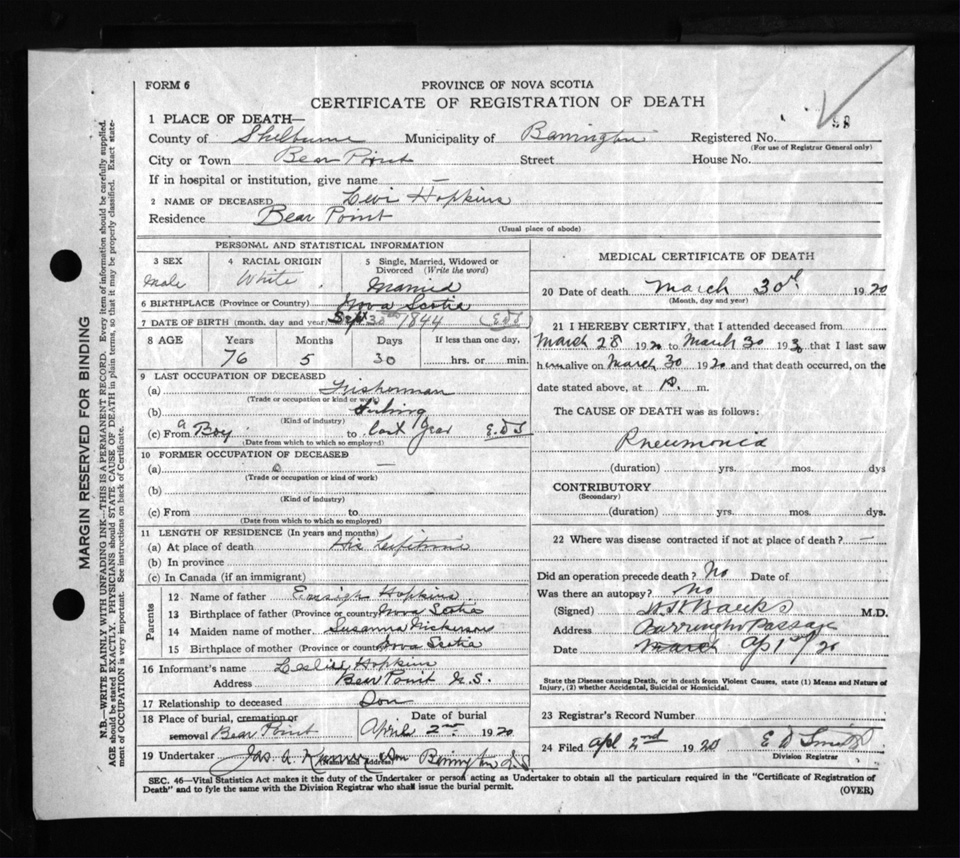 FORM 6
PROVINCE OF NOVA SCOTIA
CERTIFICATE OF REGISTRATION OF DEATH
1 PLACE OF DEATH—
County of Shelburne Municipality of Barrington Registered No.
(For use of Registrar General only)
City or Town Bear Point Street House No.
If in hospital or institution, give name —
2 NAME OF DECEASED Levi Hopkins
Residence Bear Point
(Usual place of abode)
PERSONAL AND STATISTICAL INFORMATION
3 SEX
Male
4 RACIAL ORIGIN
White
5 Single, Married, Widowed or Divorced (Write the word)
Married
6 BIRTHPLACE (Province or Country) Nova Scotia
7 DATE OF BIRTH (month, day and year) Sept 30 1844 (EDS)
8 AGE Years Months Days If less than one day,
76 5 30 hrs. or min.
9 LAST OCCUPATION OF DECEASED
(a) Fisherman
(Trade or occupation or kind of work)
(b) Fishing
(Kind of industry)
(c) From a Boy to last year E.D.S
(Date from which to which so employed)
10 FORMER OCCUPATION OF DECEASED
(a) —
(Trade or occupation or kind of work)
(b)
(Kind of industry)
(c) From to
(Date from which to which so employed)
11 LENGTH OF RESIDENCE (In years and months)
(a) At place of death His Lifetime
(b) In province
(c) In Canada (if an immigrant)
Parents
12 Name of father Hopkins
13 Birthplace of father (Province or country) Nova Scotia
14 Maiden name of mother Susanna Nickerson
15 Birthplace of mother (Province or country) Nova Scotia
16 Informant's name Leslie Hopkins
Address Bear Point N.S.
17 Relationship to deceased Son
18 Place of burial, cremation or removal Bear Point
Date of burial
April 2nd 1920
19 Undertaker Jas A. & Son Barrington N.S
(Name and address)
MEDICAL CERTIFICATE OF DEATH
20 Date of death March 30th 1920
(Month, day and year)
21 I HEREBY CERTIFY, that I attended deceased from
March 28 1920 to March 30 1920 that I last saw
him alive on March 30 1920 and that death occurred, on the
date stated above, at m.
The CAUSE OF DEATH was as follows:
Pneumonia
(duration) yrs. mos. dys
CONTRIBUTORY
(Secondary)
(duration) yrs. mos. dys.
22 Where was disease contracted if not at place of death? —
Did an operation precede death? No Date of
Was there an autopsy? No
(Signed) Banks M.D.
Address Barrington Passage
Date March Ap 1st/20
State the Disease causing Death, or in death from Violent Causes, state (1) Means and Nature of Injury, (2) whether Accidental, Suicidal or Homicidal.
23 Registrar's Record Number
24 Filed Apl 2nd 1920 E D Smith
Division Registrar
SEC. 46—Vital Statistics Act makes it the duty of the Undertaker or person acting as Undertaker to obtain all the particulars required in the "Certificate of Registration of
Death" and to fyle the same with the Division Registrar who shall issue the burial permit. (OVER)
MARGIN RESERVED FOR BINDING
N.B.—WRITE PLAINLY WITH UNFADING INK—THIS IS A PERMANENT RECORD. Every item of information should be carefully supplied.
AGE should be stated EXACTLY. PHYSICIANS should STATE CAUSE OF DEATH in plain terms, so that it may be properly classified. Exact state-
ment of OCCUPATION is very important. See instructions on back of Certificate.